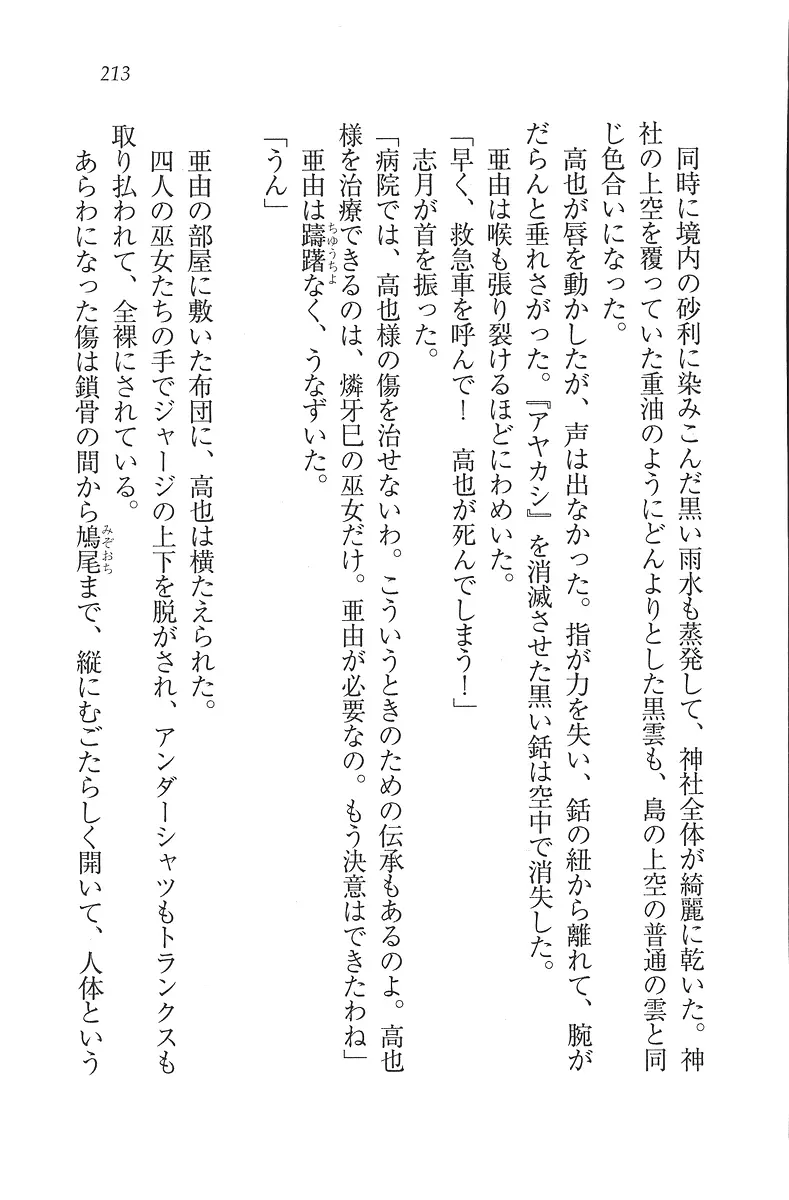 213
同時に境内の砂利に染みこんだ黒い雨水も蒸発して、神社全体が綺麗に乾いた。神
社の上空を覆っていた重油のようにどんよりとした黒雲も、島の上空の普通の雲と同
じ色合いになった。
高也が唇を動かしたが、声は出なかった。指が力を失い、銛の紐から離れて、腕が
だらんと垂れさがった。『アヤカシ』を消滅させた黒い銛は空中で消失した。
亜由は喉も張り裂けるほどにわめいた。
「早く、救急車を呼んで！　高也が死んでしまう！」
志月が首を振った。
「病院では、高也様の傷を治せないわ。こういうときのための伝承もあるのよ。高也
様を治療できるのは、燐牙巳の巫女だけ。亜由が必要なの。もう決意はできたわね」
亜由は躊躇なく、うなずいた。
ちゆうちよ
「うん」
亜由の部屋に敷いた布団に、高也は横たえられた。
四人の巫女たちの手でジャージの上下を脱がされ、アンダーシャツもトランクスも
取り払われて、全裸にされている。
あらわになった傷は鎖骨の間から鳩尾まで、縦にむごたらしく開いて、人体という
みぞおち